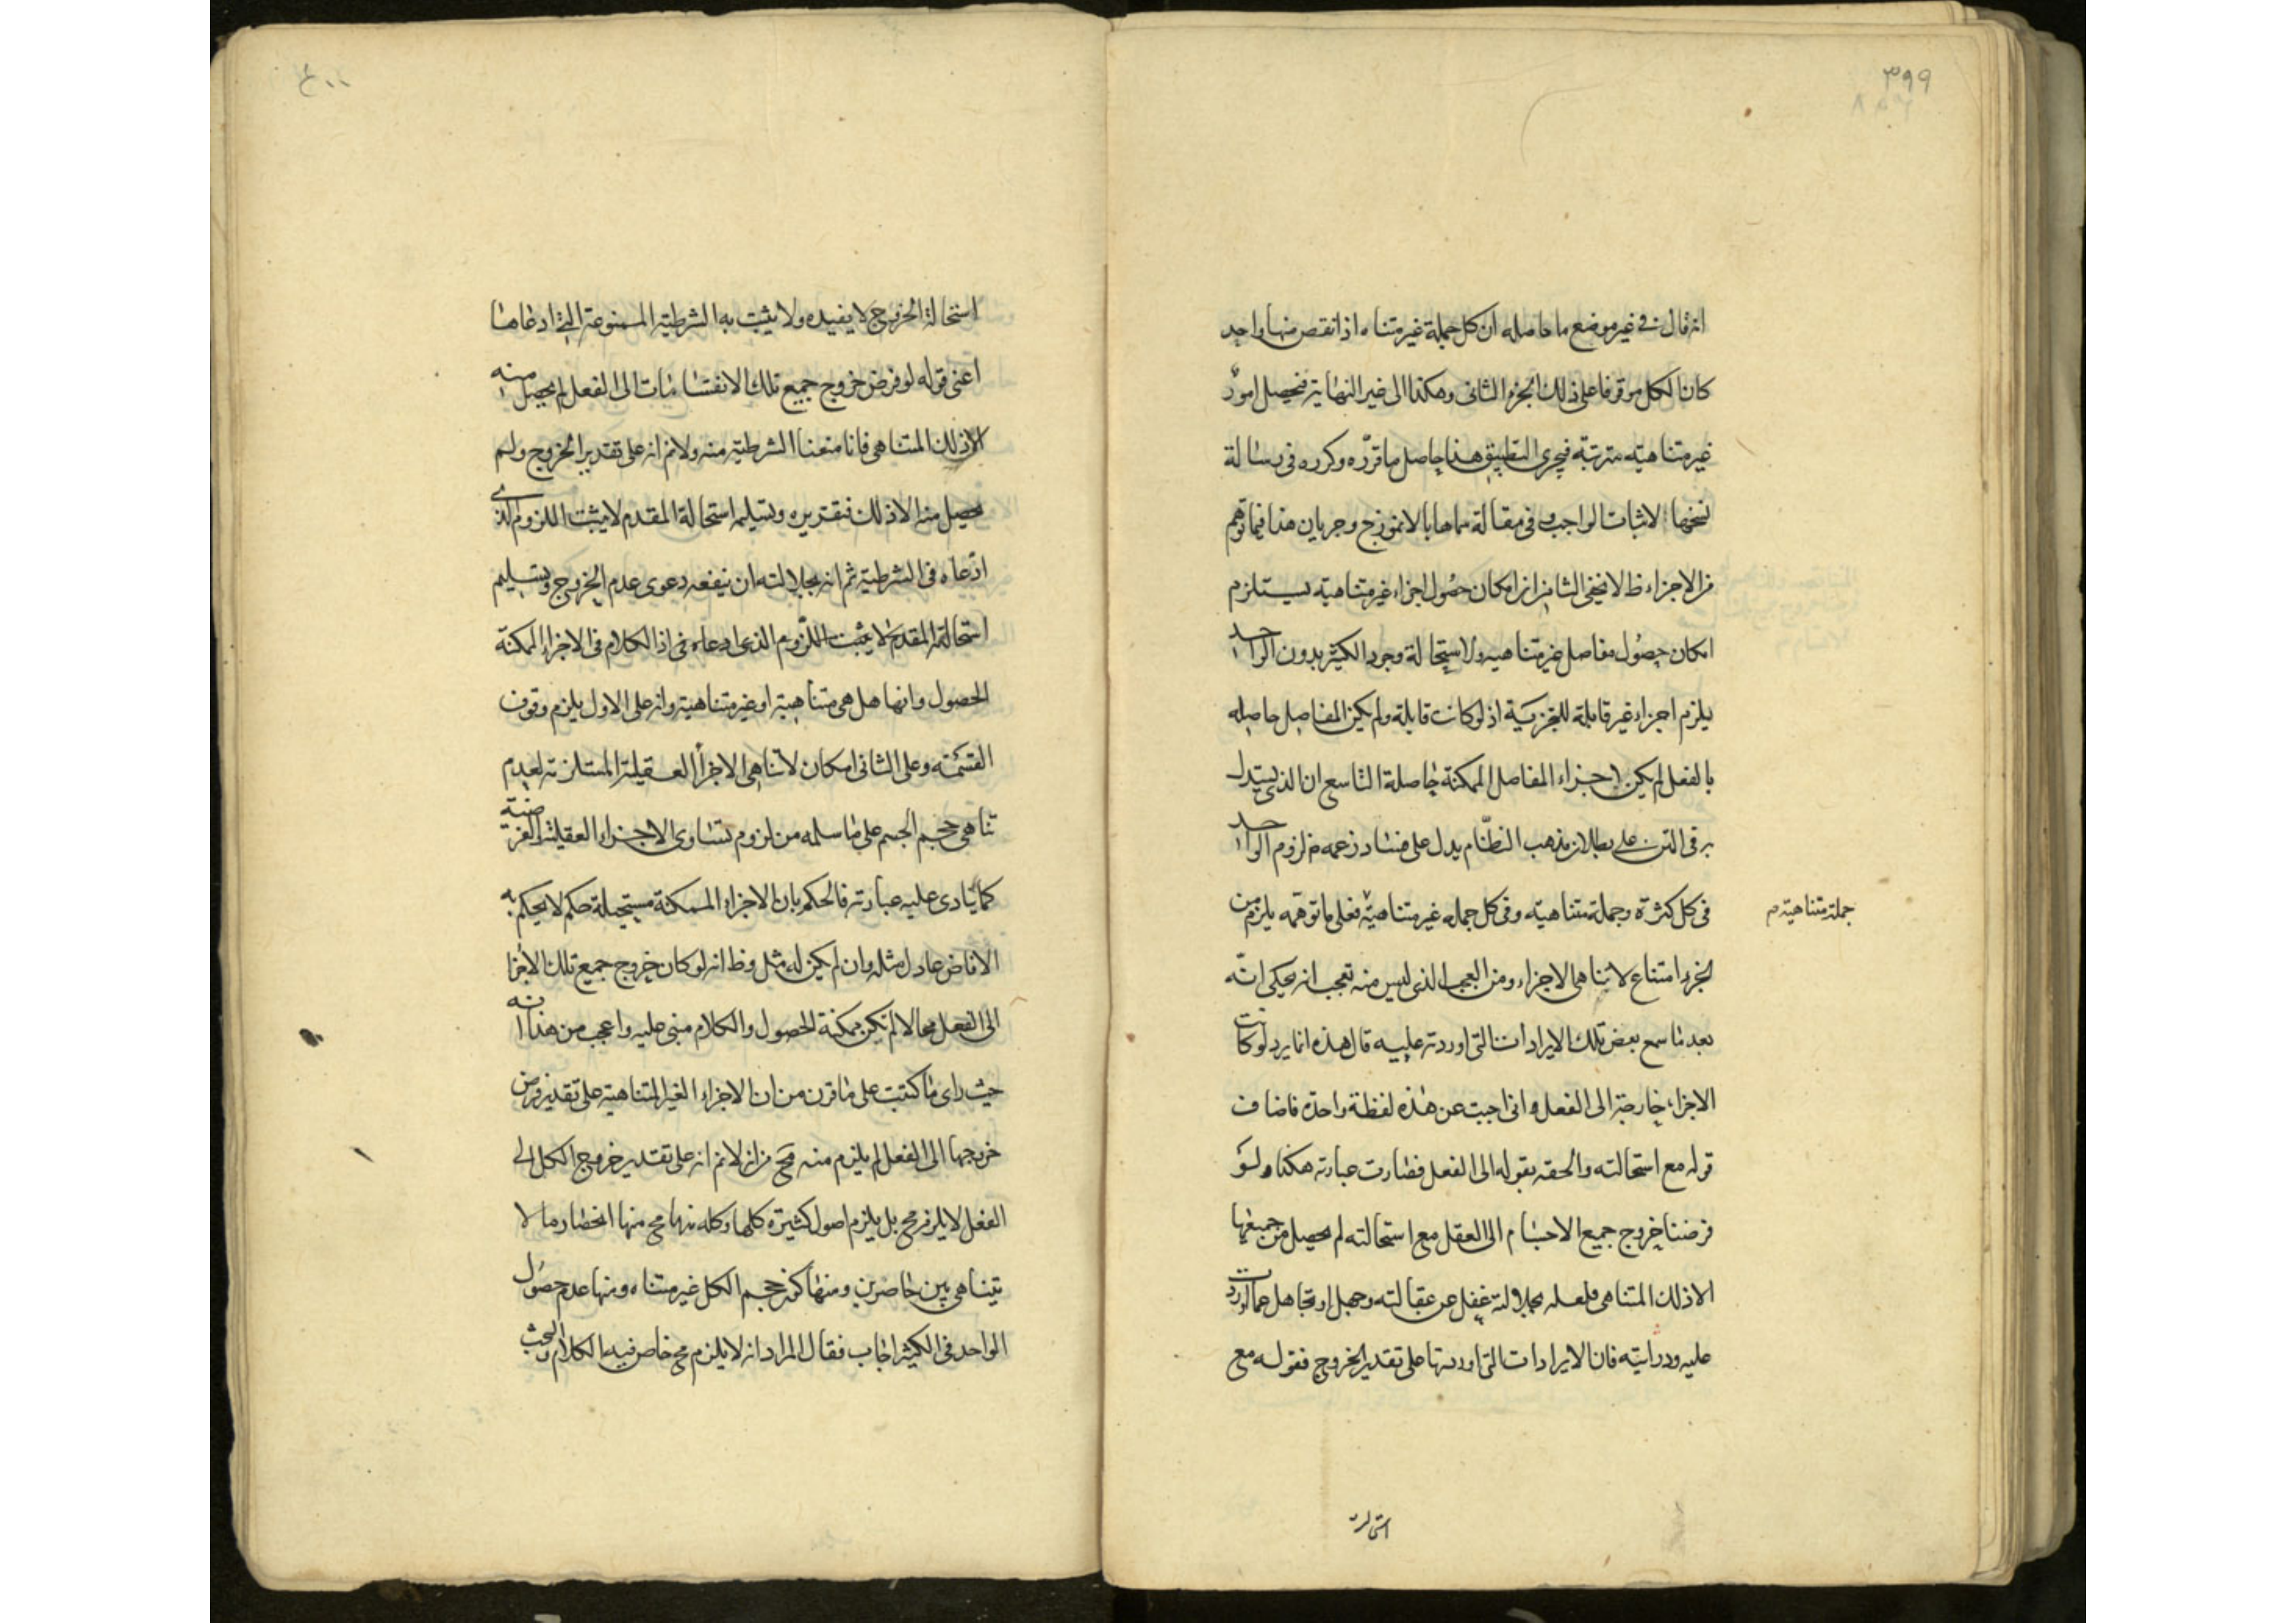 ٣٩٩
انه قال في غير موضع ما حاصله ان كل جملة غير متناه اذا نقص منها واحد
كان الكل موقوفا على ذلك الجزء الثاني وهكذا الى غير النهاية فيحصل امور
غير متناهيته مترتبه فيجرى التطبيق هذا حاصل ما قرره وكرره في رسالة
لاثبات الواجب وفي مقالة سماها بالانموذج وجريان هذا فيما توهم
من الاجزاء ظ لا يخفى الثامن ان امكان حصول اجزاء غير متناهيته يستلزم
امكان حصول مفاصل غير متناهيه ولاستحالة وجود الكثير بدون الواحد
يلزم اجزاء غير قابلة للتجزية اذ لو كانت قابلة ولم يكن المفاصل حاصله
بالفعل لم يكن اجزاء المفاصل الممكنة حاصلة التاسع ان الذي يستدل
به في المتن على بطلان مذهب النظّام يدل على فساد زعمه من لزوم الواحد
في كل كثرة وجملة متناهيته وفي كل جمله غير متناهيته فعلى ما توهمه يلزم من
جملة متناهيته م
الجزء امتناع لا تناهى الاجزاء ومن العجب الذي ليس منه تعجب انه يحكى انّه
بعد ما سمع بعض تلك الايرادات التي اوردته عليه قال هذه انما يرد لو كانت
الاجزاء خارجة الى الفعل واني اجبت عن هذه لفظة واحدة فاضاف
قوله مع استحالته والحقه بقوله الى الفعل فصارت عبارته هكذا ولو
فرضنا خروج جميع الاجسام الى العقل مع استحالته لم يحصل من جميعها
الا ذلك المتناهى فلعله بجلالته غفل عن عقالته وجهل او تجاهل عما اوردت
عليه ودرايته فان الايرادات التي اوردتها على تقدير الخروج فقوله مع
استحالة
٤٠٠
استحالة الخروج لا يفيده ولا يثبت به الشرطية الممنوعة التي ادعاها
اعنى قوله لو فرض خروج جميع تلك الانقسامات الى الفعل لم يحصل منه
الا ذلك المتناهى فانا منعنا الشرطية منه ولانم انه على تقدير الخروج ولم
يحصل منه الا ذلك فتقديره وتسليمه استحالة المقدم لا يثبت اللزوم الذي
ادّعاه في الشرطية ثم انه بجلالته ان ينفعه دعوى عدم الخروج وتسليم
استحالة المقدم لا يثبت اللزوم الذي ادعاه في اذ الكلام في الاجزاء الممكنة
الحصول وانها هل هي متناهية او غير متناهية وانه على الاول يلزم وقوف
القسمته وعلى الثاني امكان لا تناهى الاجزاء العقلية المستلزمة لعدم
تناهى حجم الجسم على ما سلمه من لزوم تساوى الاجزاء العقلية الفرضية
كما ينادى عليه عبارته فالحكم بان الاجزاء الممكنة مستحيلة حكم لا يحكم به
الافاضل عادل مثله وان لم يكن له مثل وظ انه لو كان خروج جميع تلك الاجزا
الى الفعل محالا لم تكن ممكنة الحصول والكلام مبني عليه واعجب من هذا انه
حيث راى ما كتبت على ما قرن من ان الاجزاء الغير المتناهية على تقدير فرض
خروجها الى الفعل لم يلزم منه مح من انه لانم انه على تقدير خروج الكل الى
الفعل لا يلزم مح بل يلزم اصول كثيرة كلها وكله نها مح منها انحصار ما لا
يتناهى بين حاصرين ومنها كون حجم الكل غير متناه ومنها عدم حصول
الواحد في الكثير اجاب فقال المراد انه لا يلزم مح خاص فيه الكلام والبحث